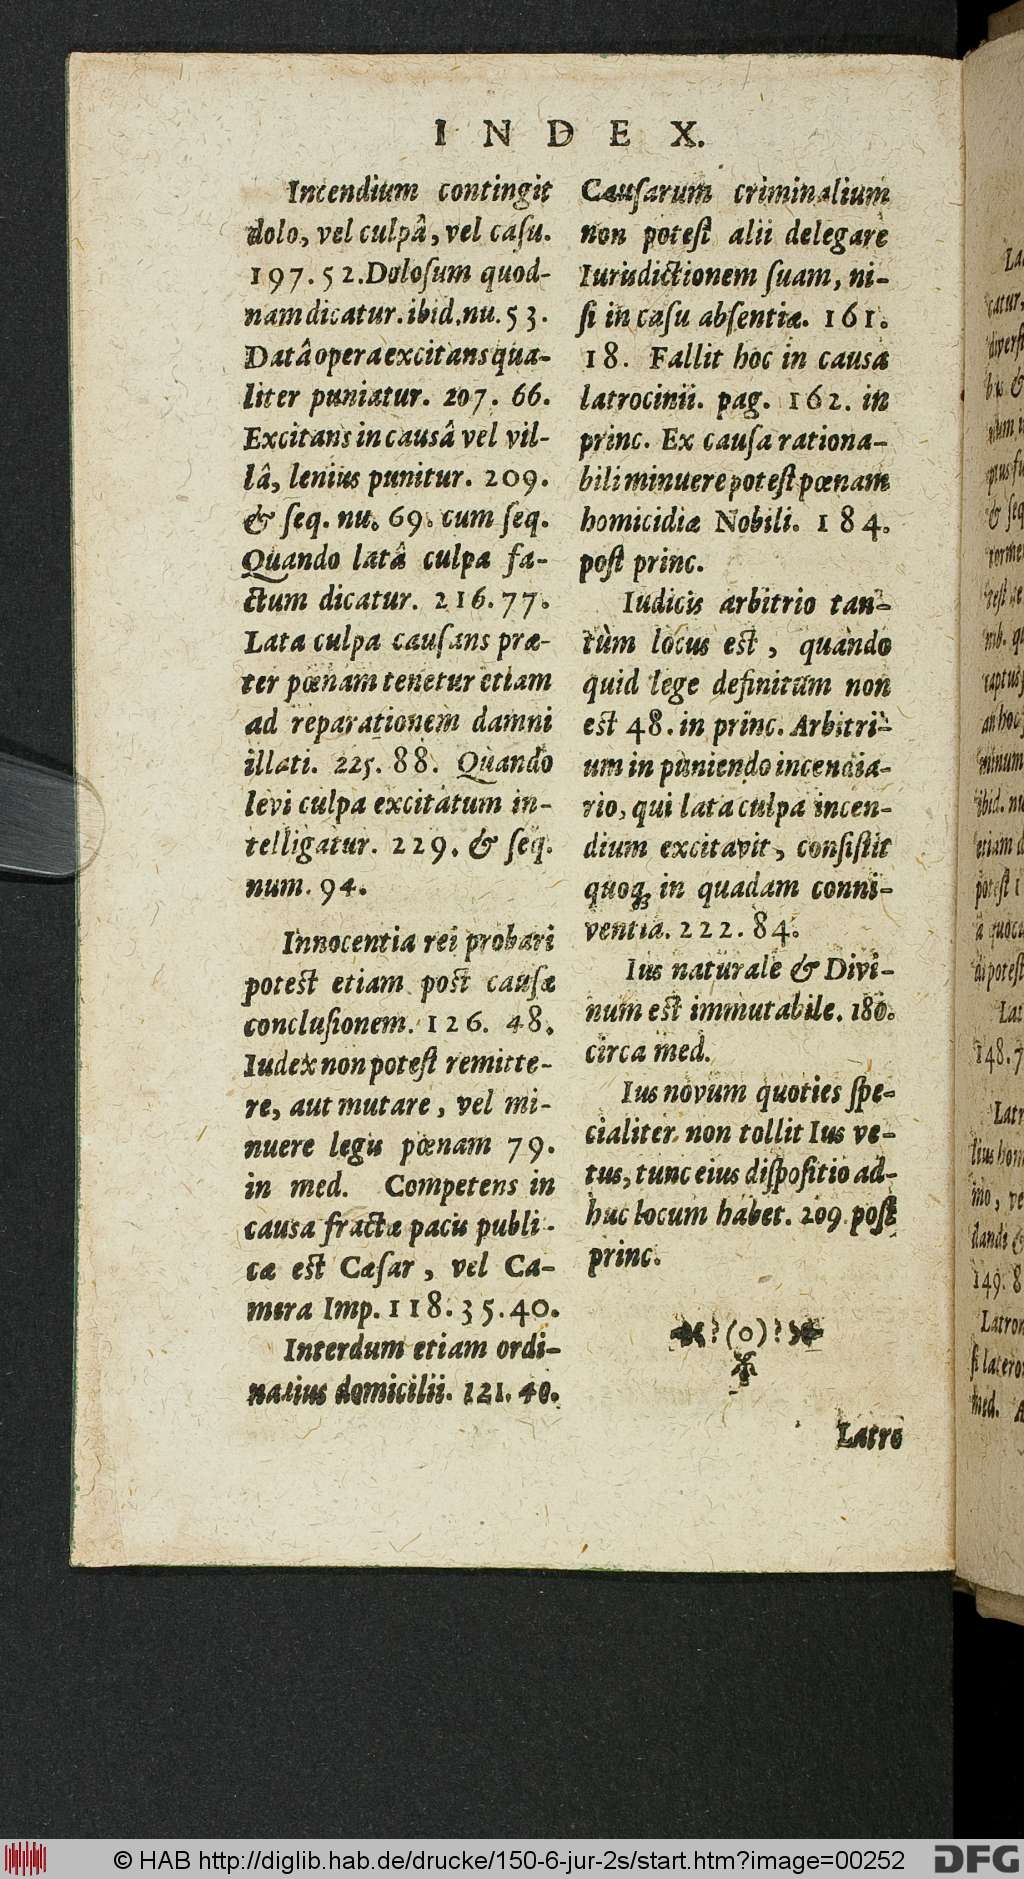 INDEX.
Incendium contingit
dolo, vel culpâ, vel casu.
197. 52. Dolosum quod-
nam dicatur. ibid. nu. 53.
Datâ opera excitans qua-
liter puniatur. 207. 66.
Excitans in causâ vel vil-
lâ, lenius punitur. 209.
& seq. nu. 69. cum seq.
Quando latâ culpa fa-
ctum dicatur. 216. 77.
Lata culpa causans præ-
ter pœnam tenetur etiam
ad reparationem damni
illati. 225. 88. Quando
levi culpa excitatum in-
telligatur. 229. & seq.
num. 94.
Innocentia rei probari
potest etiam post causæ
conclusionem. 126. 48.
Iudex non potest remitte-
re, aut mutare, vel mi-
nuere legis pœnam 79.
in med. Competens in
causa fractæ pacis publi-
cæ est Cæsar, vel Ca-
mera Imp. 118. 35. 40.
Interdum etiam ordi-
narius domicilii. 121. 40.
Causarum criminalium
non potest alii delegare
Iurisdictionem suam, ni-
si in casu absentiæ. 161.
18. Fallit hoc in causa
latrocinii. pag. 162. in
princ. Ex causa rationa-
bili minuere potest pœnam
homicidiæ Nobili. 184.
post princ.
Iudicis arbitrio tan-
tùm locus est, quando
quid lege definitum non
est 48. in princ. Arbitri-
um in puniendo incendia-
rio, qui lata culpa incen-
dium excitavit, consistit
quoq; in quadam conni-
ventia. 222. 84.
Ius naturale & Divi-
num est immutabile. 180.
circa med.
Ius novum quoties spe-
cialiter non tollit Ius ve-
tus, tunc eius dispositio ad-
huc locum habet. 209. post
princ.
Latro
© HAB http://diglib.hab.de/drucke/150-6-jur-2s/start.htm?image=00252
DFG